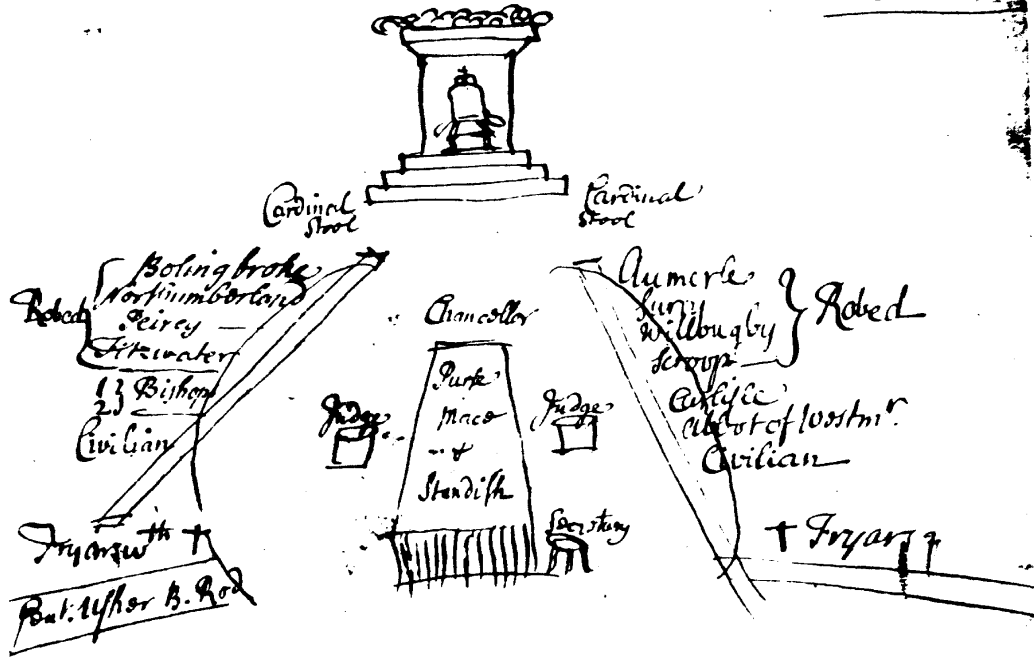 Cardinal
Stool
Cardinal
Stool
Bolingbroke
Northumberland
Peircy
Fitzwater
Robed
1 } Bishop
2
Civilian
Chancellor
Purse
Mace
&
Standish
Judge
Judge
Secretary
Aumerle
Surry
Willougby
Scroop
Robed
Carlisle
Abbot of Westmr.
Civilian
Fryars wth †
† Fryars
Gent: Usher B. Rod